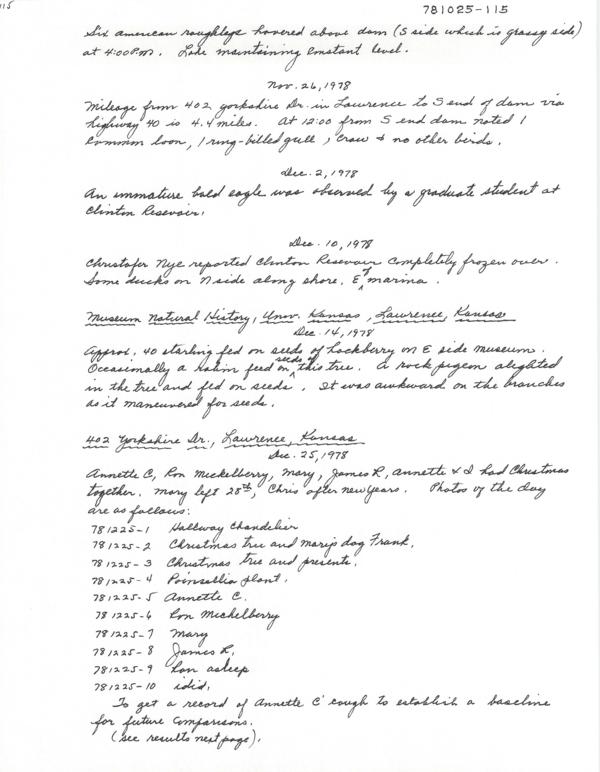 115
781025-115
Six american roughlegs hovered above dam (S side which is grassy side)
at 4:00 P.m. Lake maintaining constant level.
Nov. 26, 1978
Mileage from 402 yorkshire Dr. in Lawrence to S end of dam via
highway 40 is 4.4 miles. At 12:00 from S end dam noted 1
Common loon, 1 ring-billed gull, crow & no other birds.
Dec. 2, 1978
An immature bald eagle was observed by a graduate student at
Clinton Resevoir.
Dec. 10, 1978
Christofer Nye reported Clinton Resevoir completely frozen over.
Some ducks on N side along shore, E of marina.
Museum Natural History, Univ. Kansas, Lawrence, Kansas
Dec. 14, 1978
Approx. 40 starling fed on seeds of hackberry on E side museum.
Occasionally a Robin feed on seeds of this tree. A rock pigeon alighted
in the tree and fed on seeds. It was awkward on the branches
as it maneuvered for seeds.
402 Yorkshire Dr., Lawrence, Kansas
Dec. 25, 1978
Annette C, Ron Mickelberry, Mary, James R, Annette & I had Christmas
together. Mary left 28th, Chris after New Years. Photos of the day
are as follows:
781225-1 Hallway Chandelier
781225-2 Christmas tree and Mary's dog Frank.
781225-3 Christmas tree and presents.
781225-4 Poinsettia plant.
781225-5 Annette C.
781225-6 Ron Mickelberry
781225-7 Mary
781225-8 James R.
781225-9 Ron asleep
781225-10 idid.
To get a record of Annette C' cough to establish a baseline
for future comparisons.
(see results next page).